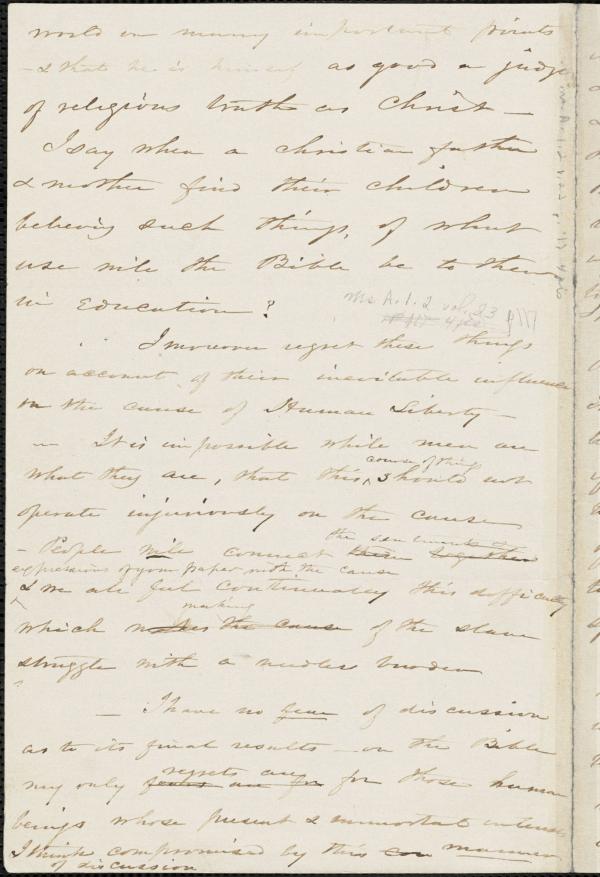 world on many important points
- & that he is himself as good a judge
of religious truth as Christ -
I say when a christian father
& mother find their children
believing such things, of what
use will the Bible be to them
in Education?
Ms A.1.2 vol. 23 p 117
I moreover regret these things
on account of their inevitable influence
on the cause of Human Liberty -
- It is impossible while men are
what they are, that this course of things should not
operate injuriously on the cause
- People will connect the sentiments &
expressions of your paper with the cause
& we all feel continually this difficulty
which making the cause of the slave
struggle with a needless burden
- I have no fear of discussion
as to its final results - on the Bible
my only regrets are for those human
beings whose present & immortal interests
I think compromised by this manner
of discussion